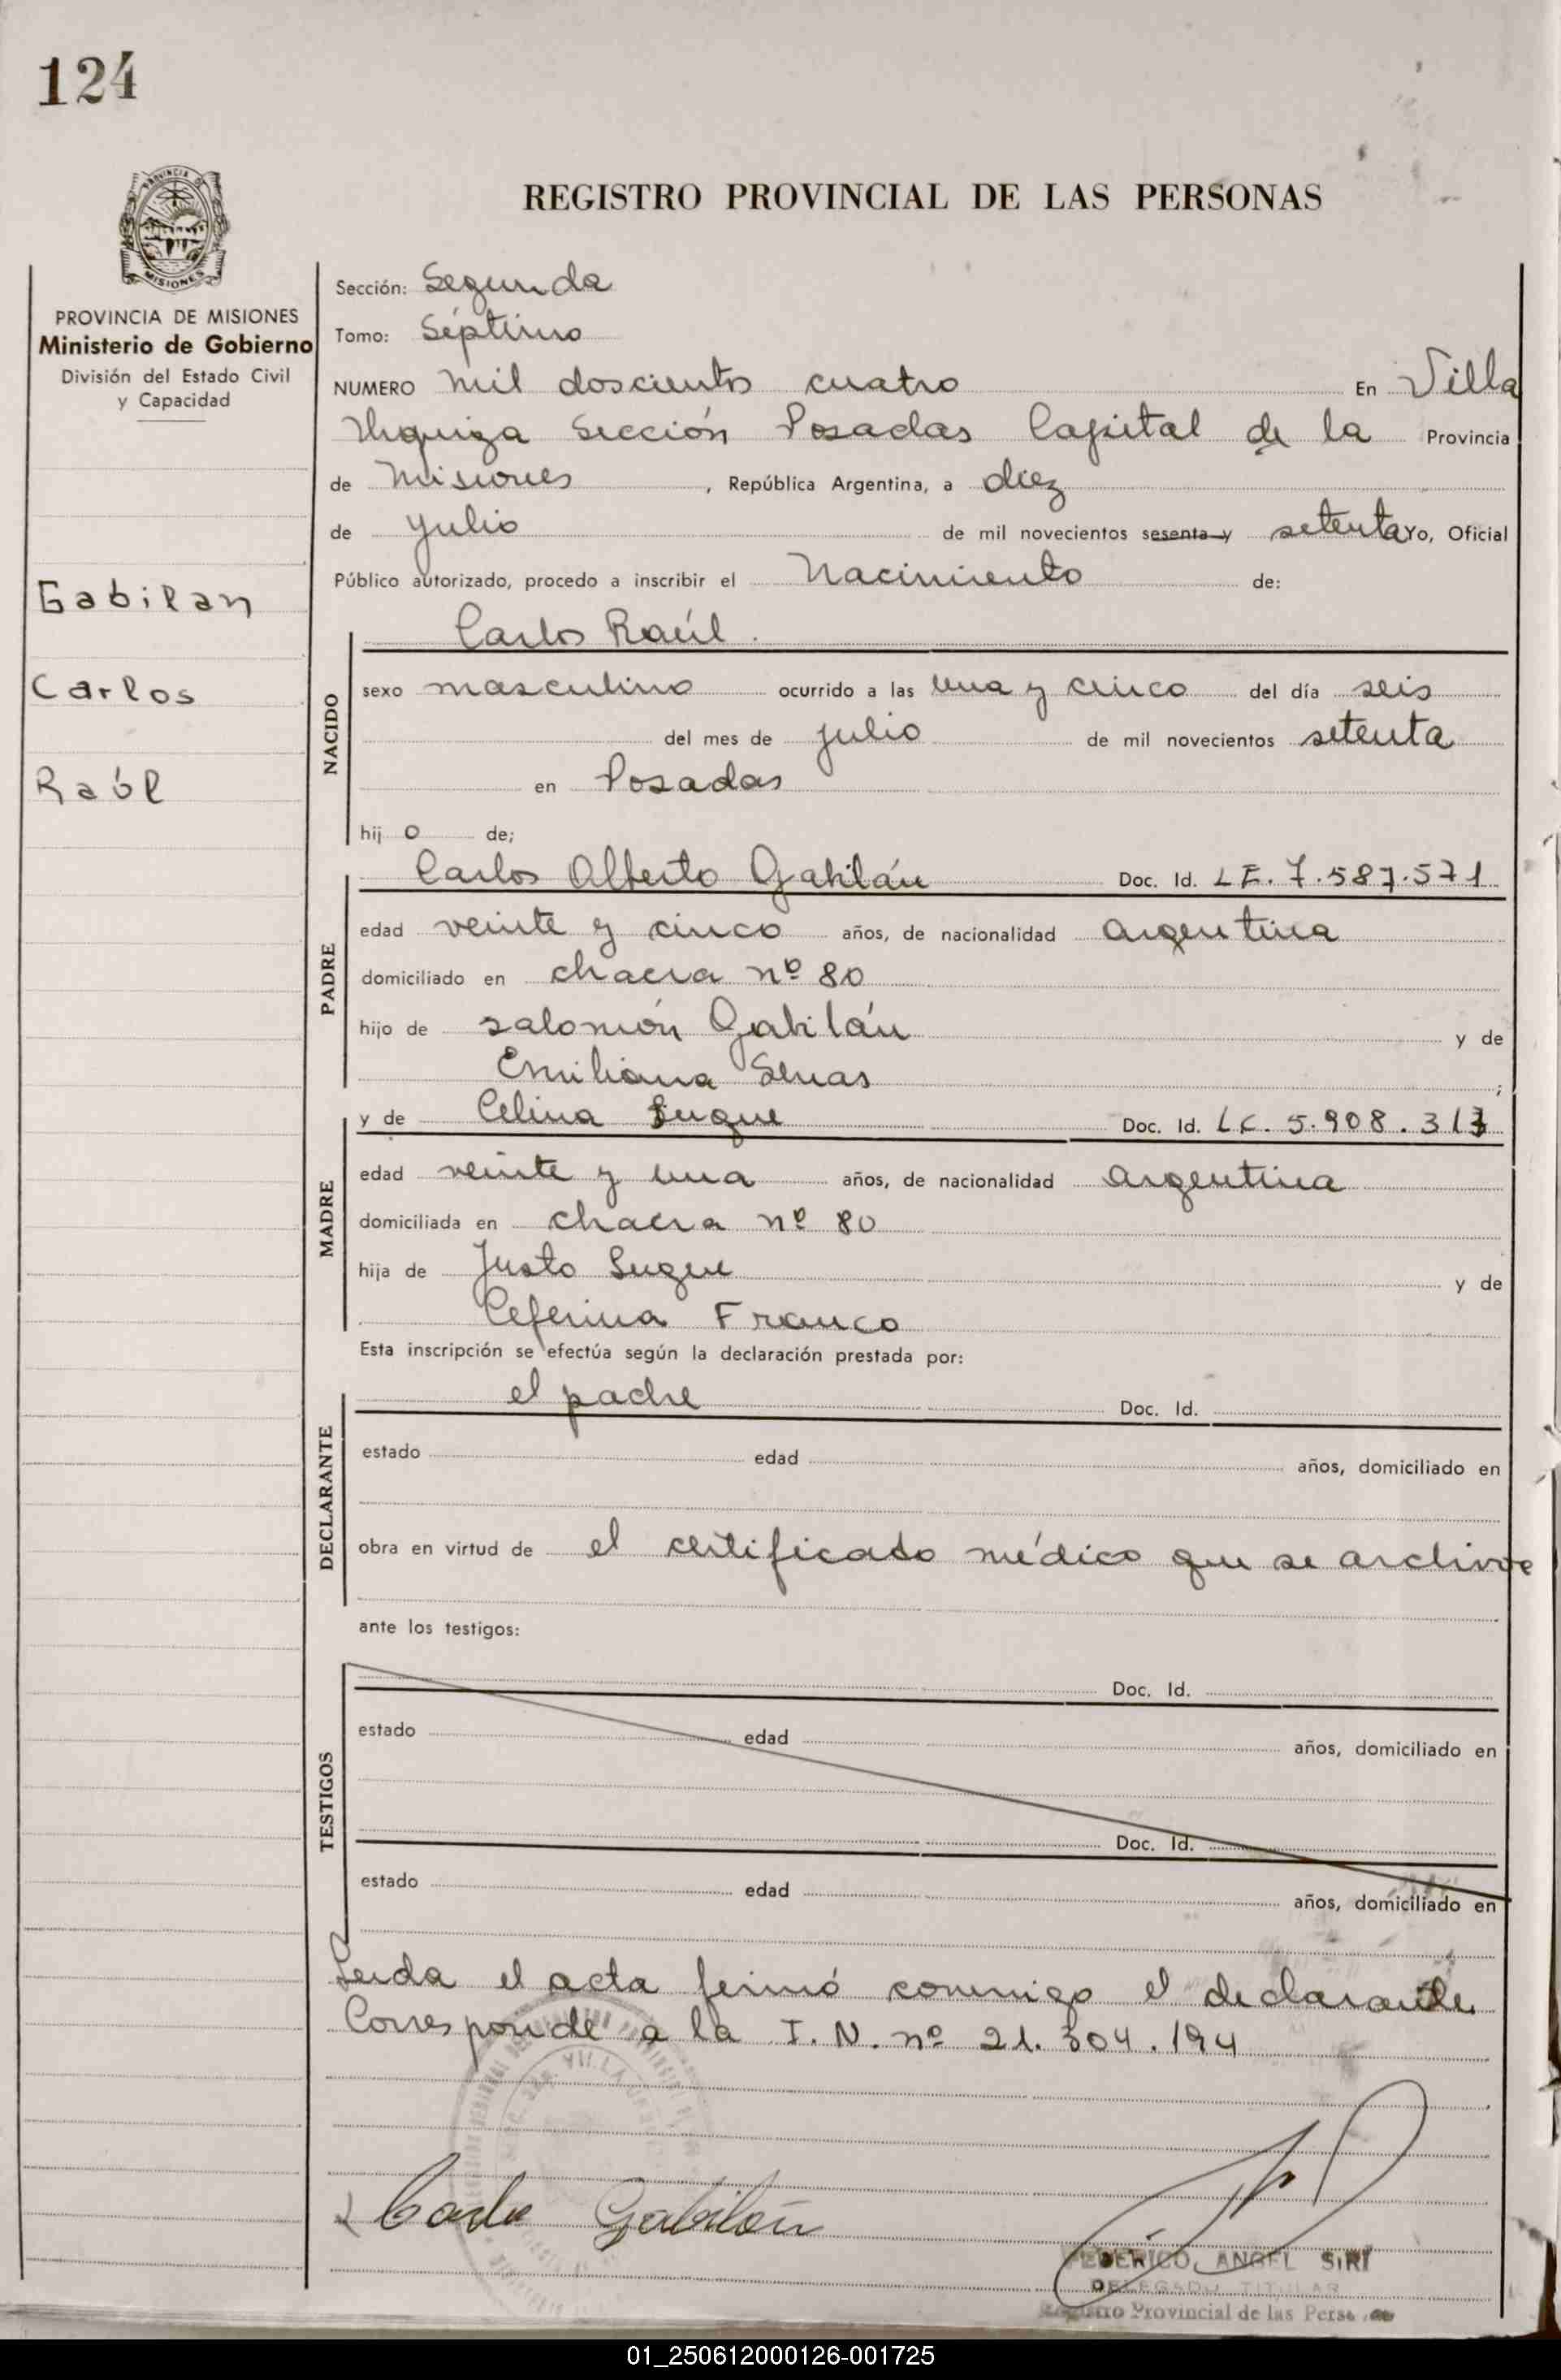 124
PROVINCIA DE
MISIONES
PROVINCIA DE MISIONES
Ministerio de Gobierno
División del Estado Civil
y Capacidad
Gabilan
Carlos
Raúl
REGISTRO PROVINCIAL DE LAS PERSONAS
Sección: Segunda
Tomo: Séptimo
NUMERO mil doscientos cuatro En Villa
Urquiza Sección Posadas Capital de la Provincia
de Misiones, República Argentina, a diez
de julio de mil novecientos sesenta y setenta Yo, Oficial
Público autorizado, procedo a inscribir el Nacimiento de:
Carlos Raúl.
NACIDO
sexo masculino ocurrido a las una y cinco del día seis
del mes de julio de mil novecientos setenta
en Posadas
hij o de;
Carlos Alberto Gabilán Doc. Id. L.E. 7.587.571
PADRE
edad veinte y cinco años, de nacionalidad argentina
domiciliado en chacra nº 80
hijo de Salomón Gabilán y de
Emiliana ;
y de Celina Luque Doc. Id. L.C. 5.908.313
MADRE
edad veinte y una años, de nacionalidad argentina
domiciliada en chacra nº 80
hija de Justo Luque y de
Ceferina Franco
Esta inscripción se efectúa según la declaración prestada por:
el padre Doc. Id.
DECLARANTE
estado edad años, domiciliado en
obra en virtud de el certificado médico que se archiva
ante los testigos:
Doc. Id.
TESTIGOS
estado edad años, domiciliado en
Doc. Id.
estado edad años, domiciliado en
Leida el acta firmó conmigo el declarante
Corresponde a la I. N. nº 21.304.194
Carlos Gabilán
FEDERICO ANGEL SIRI
DELEGADO TITULAR
Registro Provincial de las Personas
01_250612000126-001725